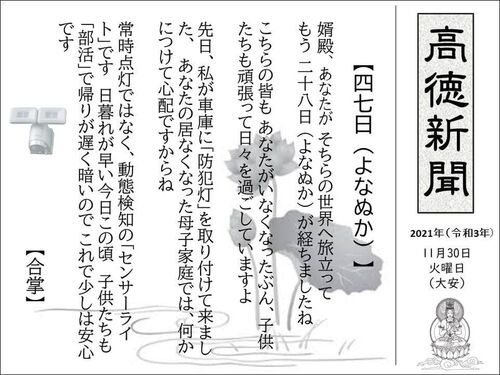 高徳新聞
2021年（令和3年）
11月30日
火曜日
（大安）
【四七日（よなぬか）】
婿殿、あなたが そちらの世界へ旅立って
もう 二十八日（よなぬか）が経ちましたね
こちらの皆も あなたがいなくなったぶん、子供
たちも頑張って日々を過ごしていますよ
先日、私が車庫に「防犯灯」を取り付けて来まし
た、 あなたの居なくなった母子家庭では、何か
につけて心配ですからね
常時点灯ではなく、動態検知の「センサーライ
ト」です 日暮れが早い今日この頃 子供たちも
「部活」で帰りが遅く暗いので これで少しは安心
です
【合掌】